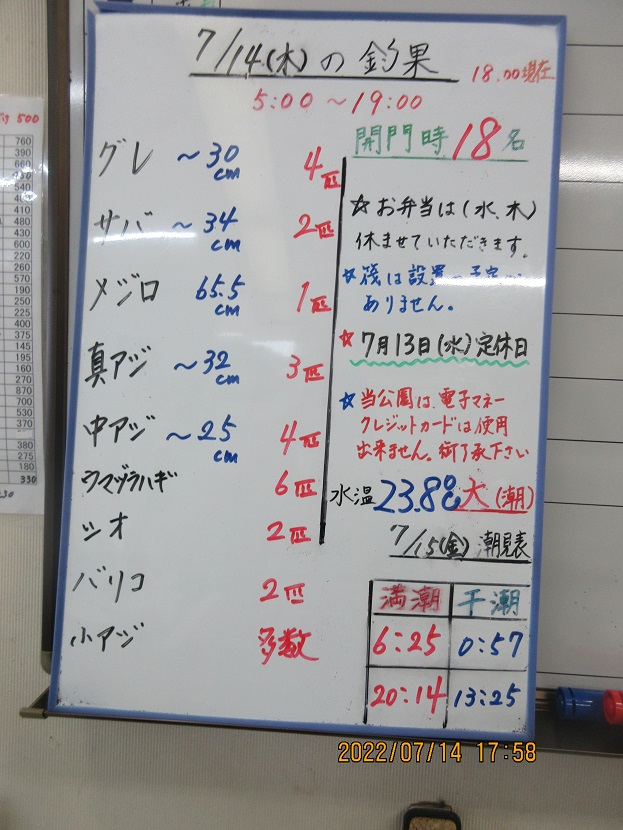 7/14(木)の釣果
18:00現在
5:00～19:00
グレ ～30cm 4匹
サバ ～34cm 2匹
メジロ 65.5cm 1匹
真アジ ～32cm 3匹
中アジ ～25cm 4匹
ウマヅラハギ 6匹
シオ 2匹
バリコ 2匹
小アジ 多数
開門時18名
☆お弁当は(水、木)
休ませていただきます。
☆後は設置の予定は
ありません。
☆7月13日(水)定休日
☆当公園は、電子マネー
クレジットカードは使用
出来ません。御了承下さい
水温23.8℃大(潮)
7/15(金)潮見表
満潮 干潮
6:25 0:57
20:14 13:25
500
760
390
220
190
175
145
195
160
370
530
370
380
275
180
330
2022/07/14 17:58